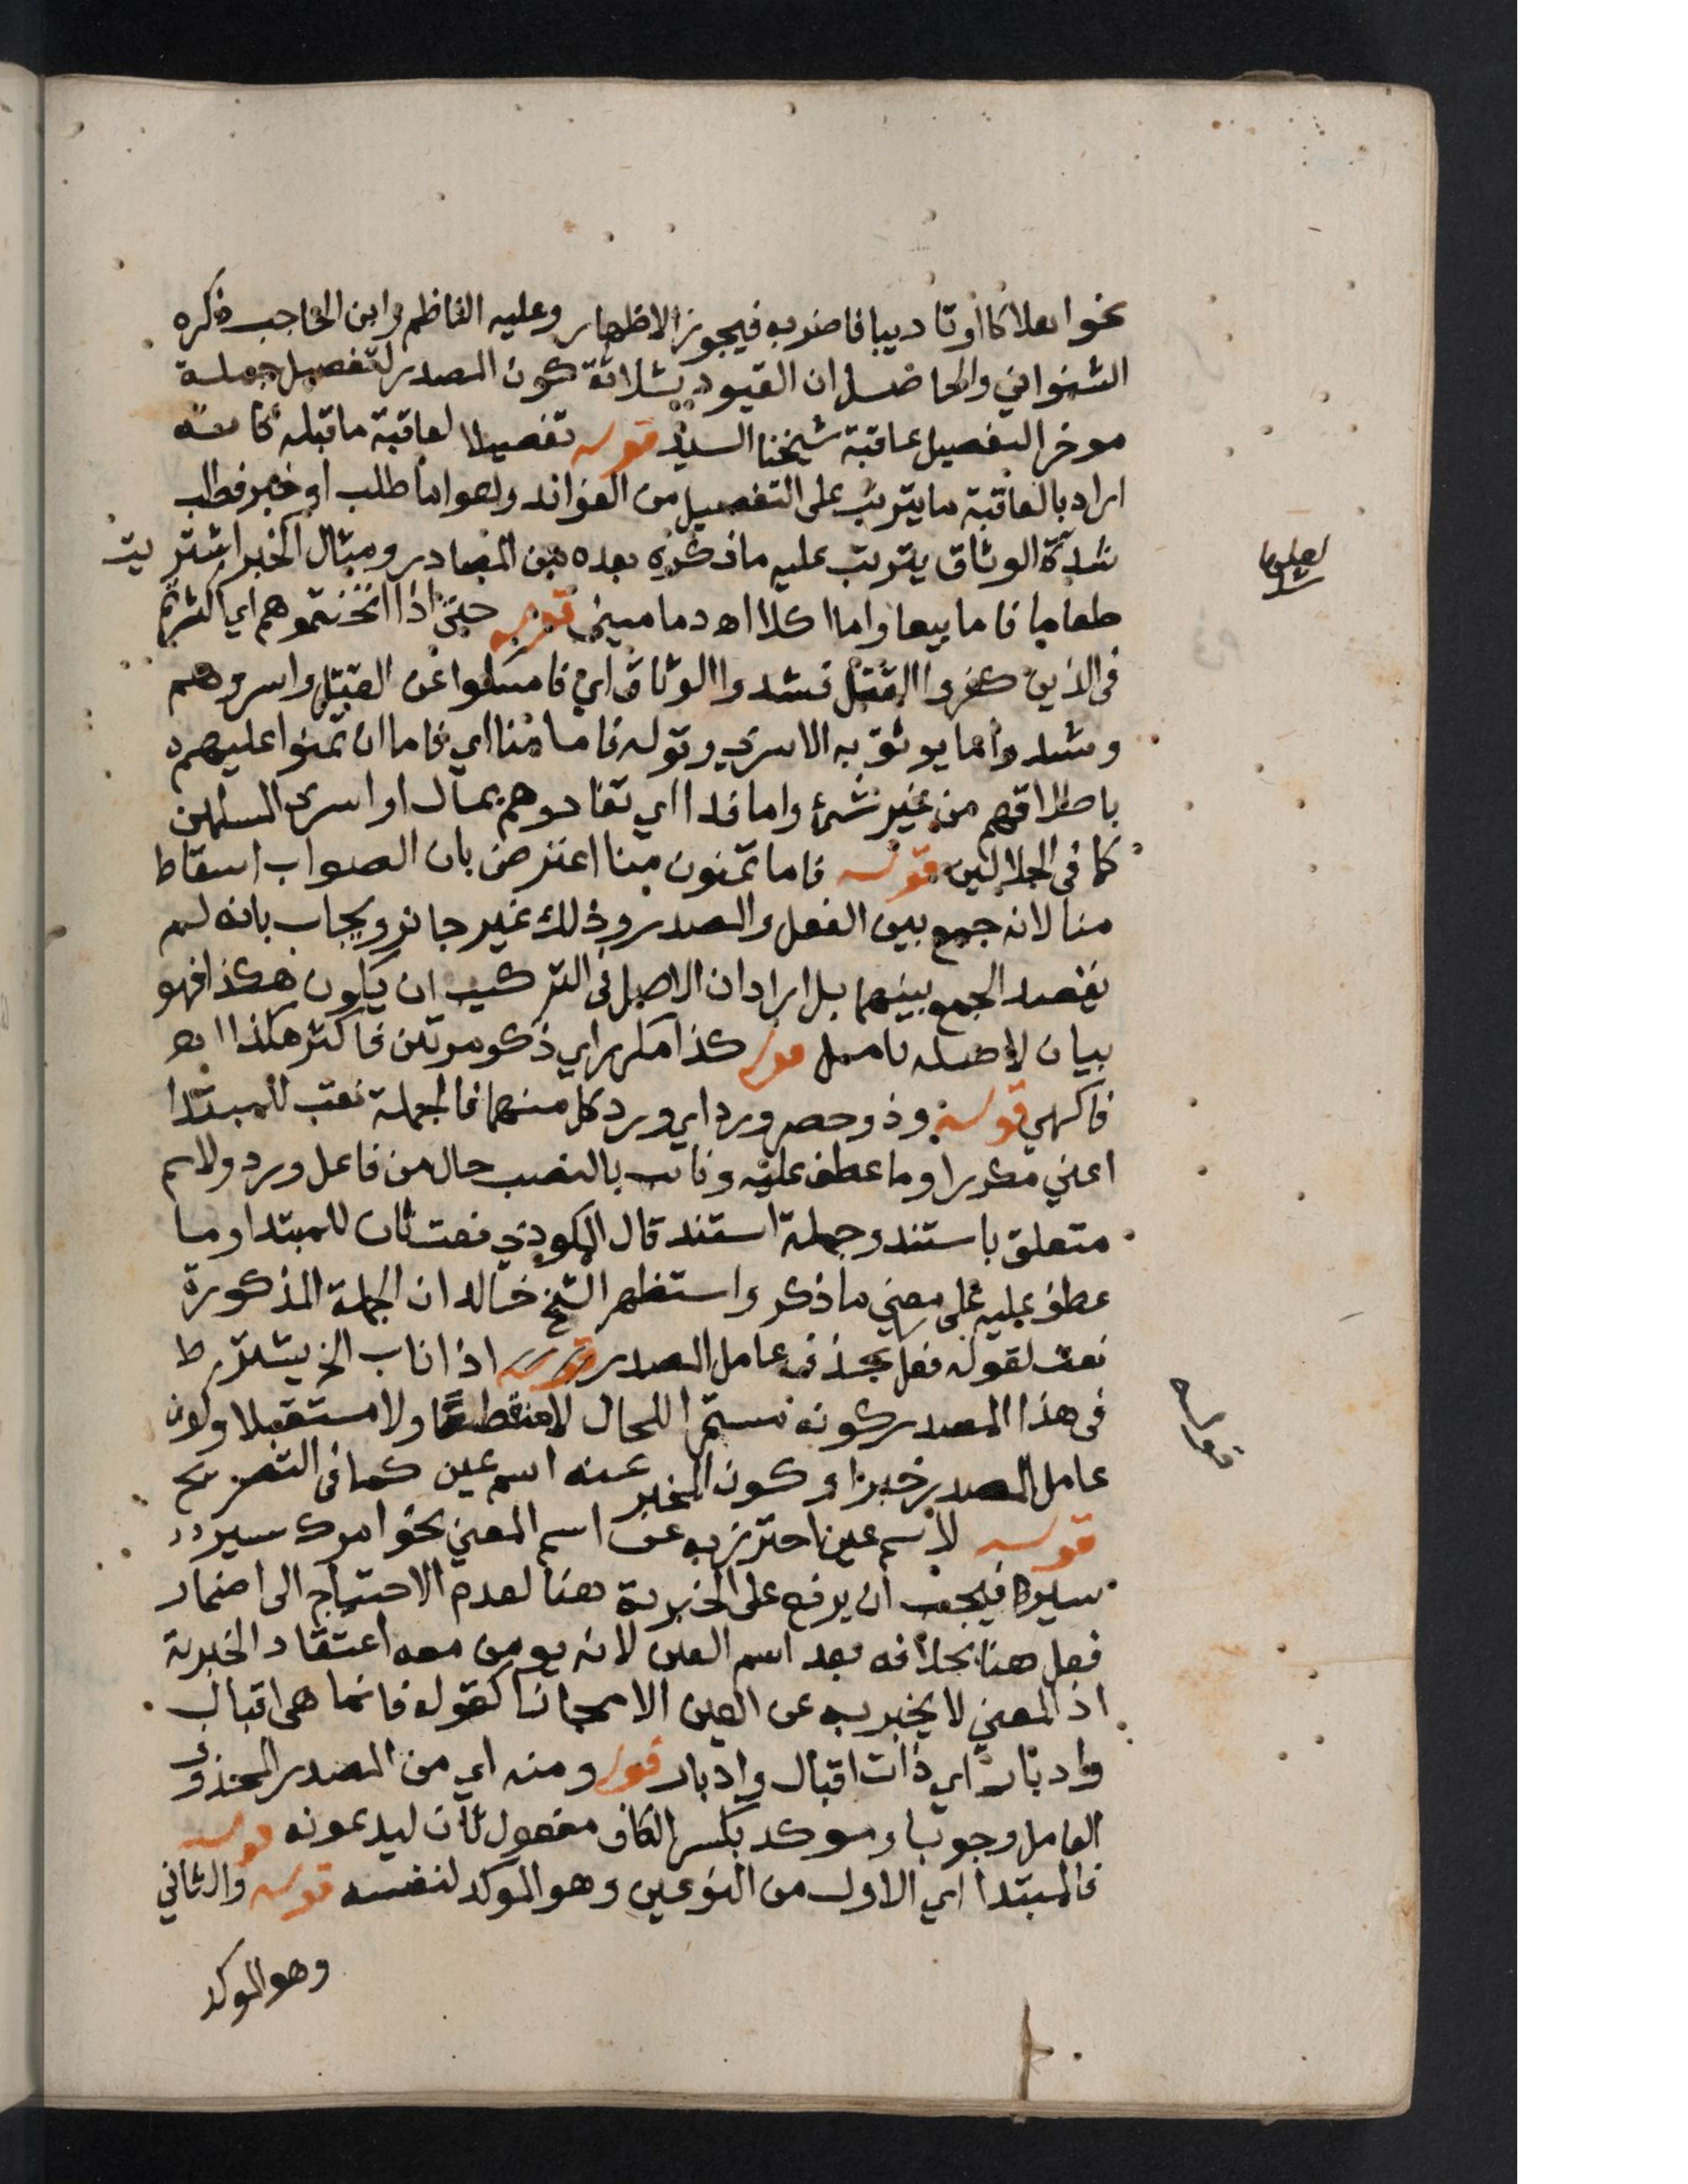 نحو اهلاكا او تاديبا فاضربه فيجوز الاظهار وعليه الناظم وابن الحاجب ذكره
الشنواني والحاصل ان القيود ثلاثة كون المصدر لتفصيل جملة
موخر التفصيل عاقبة شيخنا السيد قوله تفصيلا لعاقبة ما قبله
اراد بالعاقبة ما يترتب على التفصيل من الفوائد وهو اما طلب او خبر فطلب
شدة الوثاق يترتب عليه ما ذكره بعده من المصادر ومثال الخبر اشتريت
طعاما فاما بيعا واما اكلا اه دماميني قوله حتى اذا اثخنتموهم اي اكثرتم
في الذين كفروا القتل فشدوا الوثاق اي فامسكوا عن القتل واسروهم
وشدوا ما يوثق به الاسرى وقوله فاما منا اي فاما ان تمنوا عليهم
باطلاقهم من غير شئ واما فدا اي تفادوهم بمال او اسرى المسلمين
كما في الجلالين قوله فاما تمنون منا اعترض بان الصواب اسقاط
منا لانه جمع بين الفعل والمصدر وذلك غير جائز ويجاب بانه لم
يقصد الجمع بينهما بل اراد ان الاصل في التركيب ان يكون هكذا فهو
بيان لاصله تامل قوله كذا مكرر اي ذكر مرتين فاكثر هكذا
فاكهي قوله وذو حصر ورد اي ورد كل منهما فالجملة نعت للمبتدا
اعني مكررا وما عطف عليه ونائب بالنصب حال من فاعل ورد ولاسم
متعلق باستند وجملة استند قال المكودي نعت ثان للمبتدا وما
عطف عليه على معنى ما ذكر واستظهر الشيخ خالد ان الجملة المذكورة
نعت لقوله فعل بحذف عامل المصدر قوله اذا ناب الخ يشترط
في هذا المصدر كونه مستمرا للحال لا منقطعا ولا مستقبلا وكون
عامل المصدر خبرا وكون المخبر عنه اسم عين كما في التصريح
قوله لاسم عين احترز به عن اسم المعنى نحو امرك سير
سير فيجب ان يرفع على الخبرية هنا لعدم الاحتياج الى اضمار
فعل هنا بخلافه بعد اسم العين لانه يومن معه اعتقاد الخبرية
اذ المعنى لا يخبر به عن العين الا مجازا كقوله فانما هي اقبال
وادبار اي ذات اقبال وادبار قوله ومنه اي من المصدر المحذوف
العامل وجوبا وموكد بكسر الكاف مفعول ثان ليدعونه قوله
فالمبتدا اي الاول من النوعين وهو الموكد لنفسه قوله والثاني
وهو الموكد
قوله